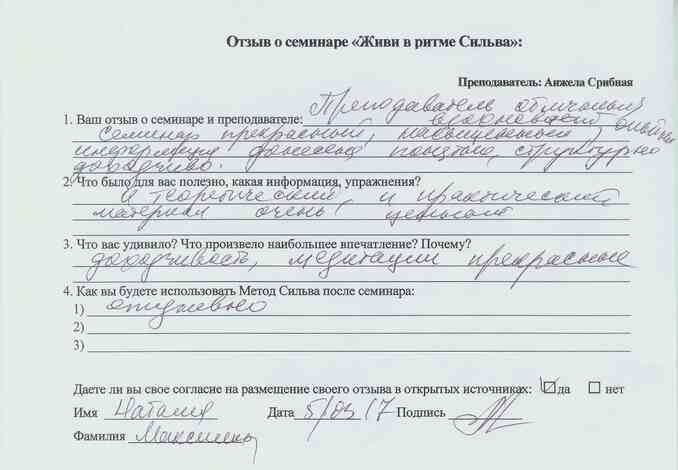 Отзыв о семинаре «Живи в ритме Сильва»:
Преподаватель: Анжела Срибная
1. Ваш отзыв о семинаре и преподавателе: Преподаватель отличный
Семинар прекрасный, насыщенный,
информация донесена понятно, структурно
доходчиво.
2. Что было для вас полезно, какая информация, упражнения?
и теоретический, и практический
материал очень
3. Что вас удивило? Что произвело наибольшее впечатление? Почему?
доходчивость, медитации прекрасные
4. Как вы будете использовать Метод Сильва после семинара:
1) ежедневно
2)
3)
Даете ли вы свое согласие на размещение своего отзыва в открытых источниках: да нет
Имя Наталия Дата 5/03/17 Подпись
Фамилия